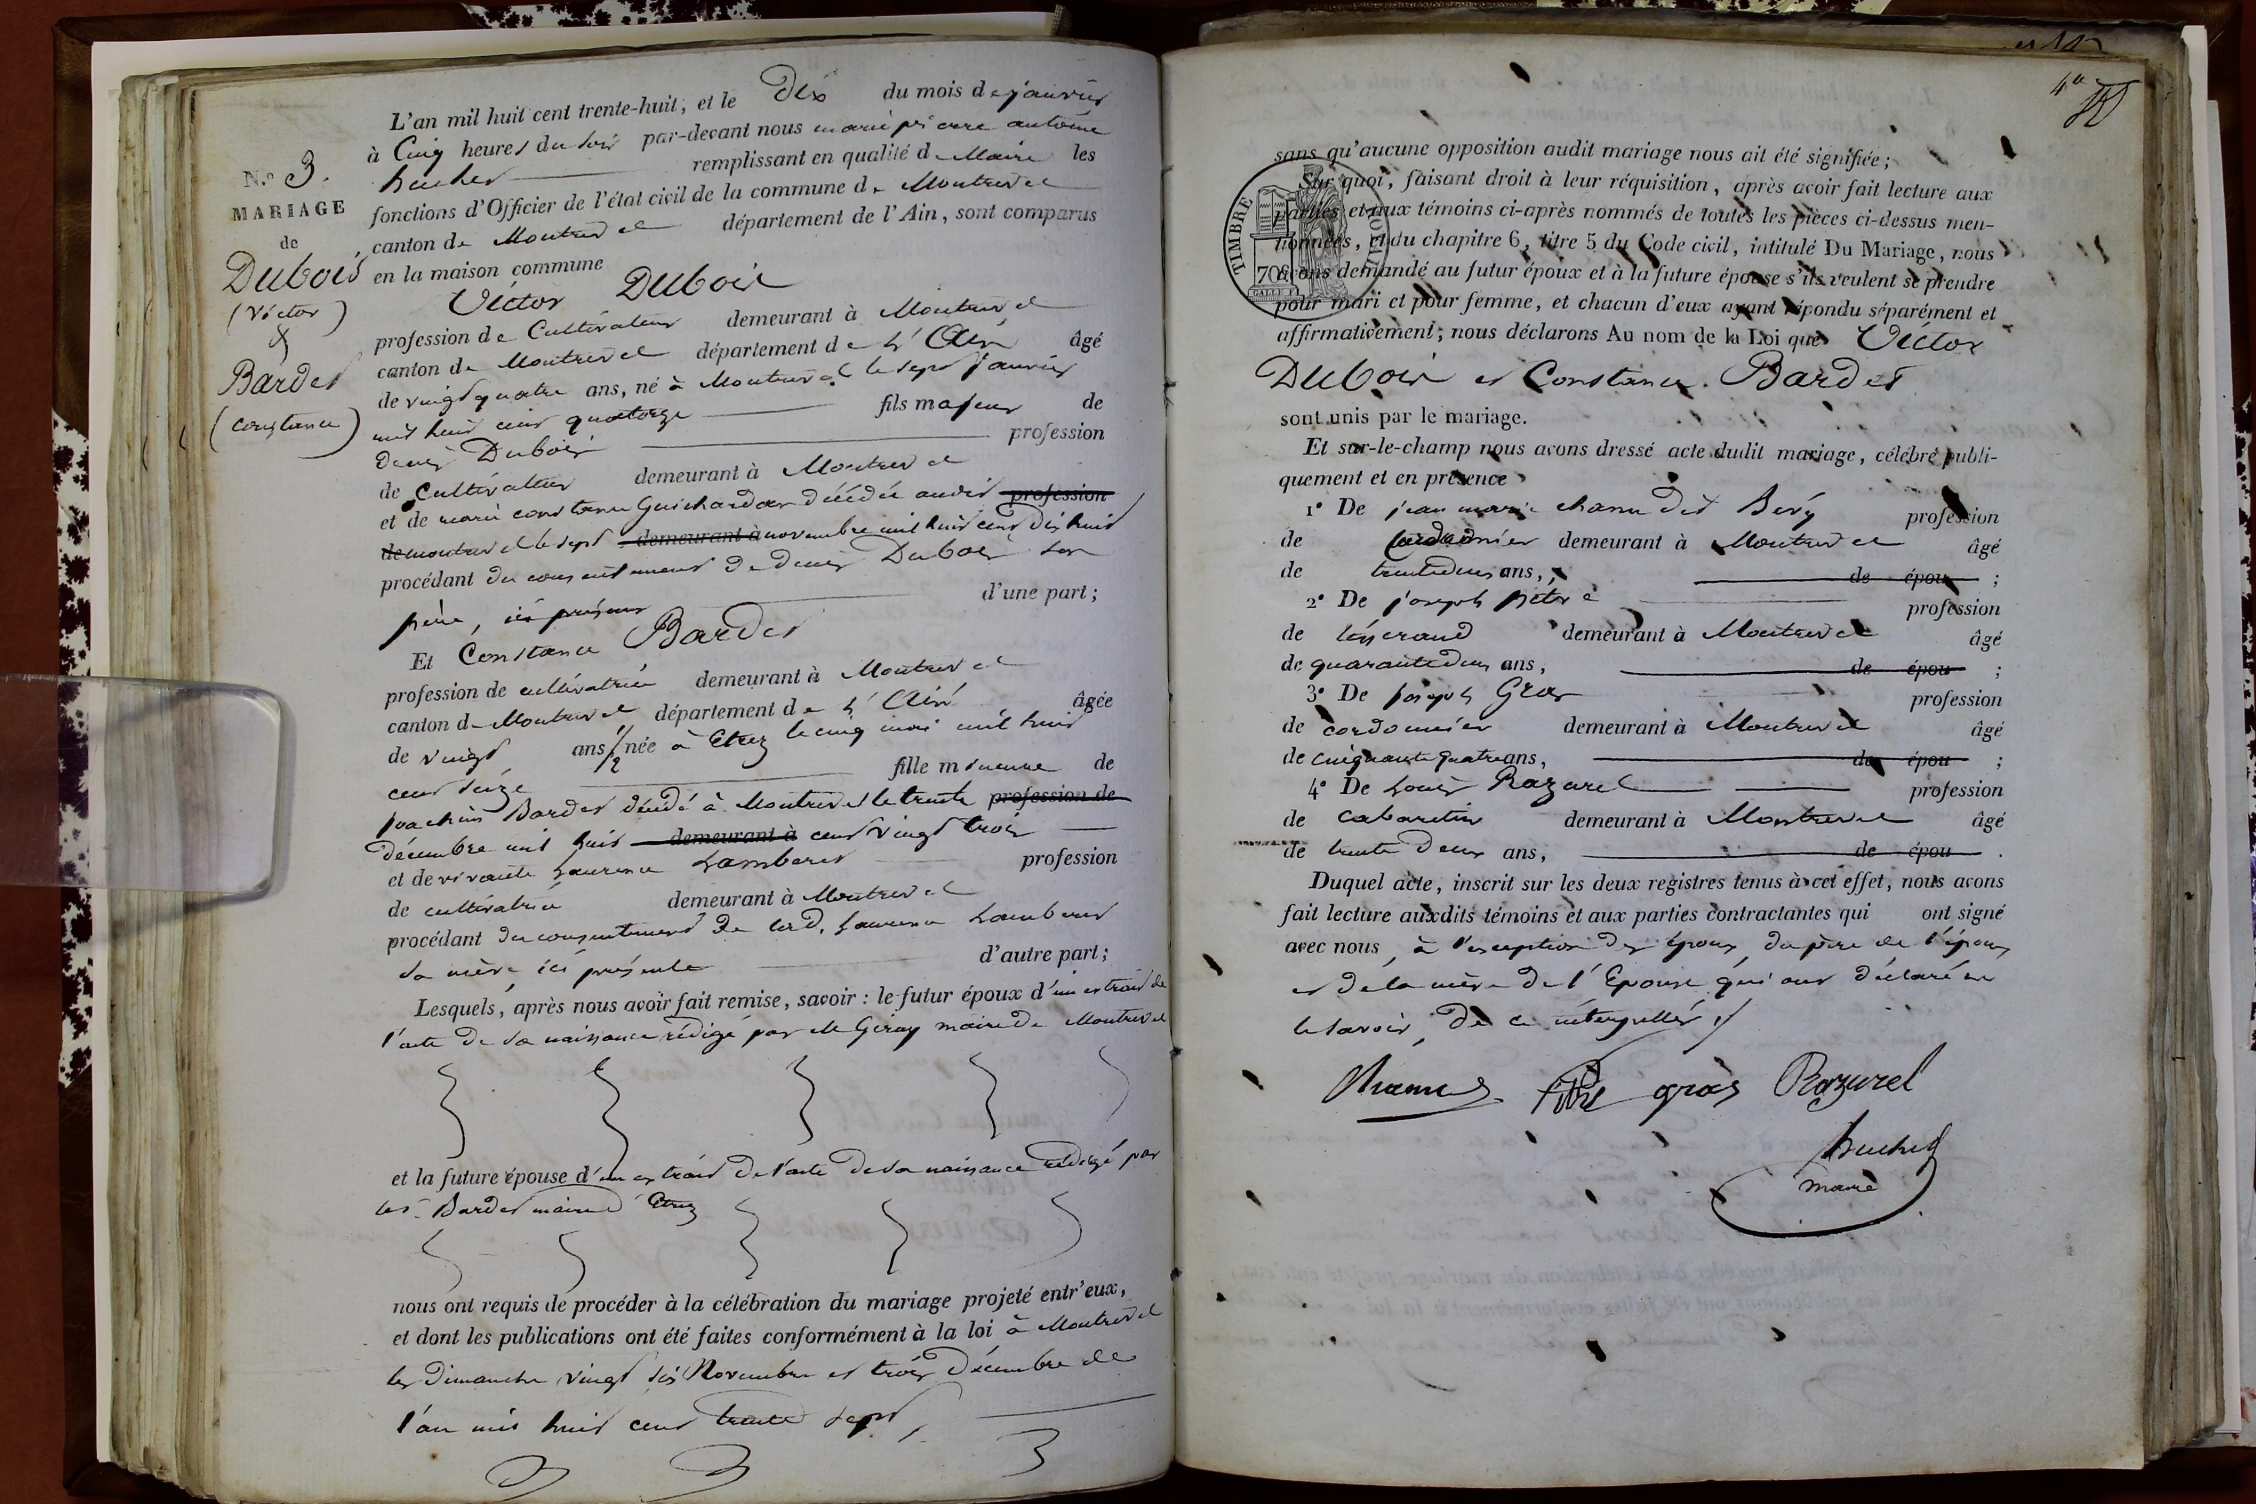 N.o 3.
MARIAGE
de
Dubois
(Victor)
&
Bardet
(Constance)
L'an mil huit cent trente-huit, et le Dix du mois de janvier
à Cinq heures du soir par-devant nous marie pierre antoine
huchet remplissant en qualité de Maire les
fonctions d'Officier de l'état civil de la commune de Montrevel
canton de Montrevel département de l'Ain, sont comparus
en la maison commune
Victor Dubois
profession de Cultivateur demeurant à Montrevel
canton de Montrevel département de L'Ain âgé
de vingt quatre ans, né à Montrevel le sept janvier
mil huit cent quatorze fils majeur de
denis Dubois profession
de Cultivateur demeurant à Montrevel
et de marie constance Guichardan décédée audit profession
de montrevel le sept demeurant à novembre mil huit cent dix huit
procédant du consentement de denis Dubois son
père, ici présent d'une part;
Et Constance Bardet
profession de cultivatrice demeurant à Montrevel
canton de Montrevel département de L'Ain âgée
de vingt ans 1/2 née à Etrez le cinq mai mil huit
cent seize fille mineure de
joachim Bardet décédé à Montrevel le trente profession de
décembre mil huit demeurant à cent vingt trois
et de vivante Laurence Lamberet profession
de cultivatrice demeurant à Montrevel
procédant du consentement de lad. Laurence Lamberet
sa mère ici présente d'autre part;
Lesquels, après nous avoir fait remise, savoir : le futur époux d'un extrait de
l'acte de sa naissance rédigé par M Giray maire de Montrevel
et la future épouse d'un extrait de l'acte de sa naissance rédigé par
Bardet maire d'Etrez
nous ont requis de procéder à la célébration du mariage projeté entr'eux,
et dont les publications ont été faites conformément à la loi à Montrevel
les Dimanche vingt six Novembre et trois Décembre de
l'an mil huit cent trente sept,
sans qu'aucune opposition audit mariage nous ait été signifiée;
Sur quoi, faisant droit à leur réquisition, après avoir fait lecture aux
parties et aux témoins ci-après nommés de toutes les pièces ci-dessus men-
tionnées, et du chapitre 6, titre 5 du Code civil, intitulé Du Mariage, nous
avons demandé au futur époux et à la future épouse s'ils veulent se prendre
pour mari et pour femme, et chacun d'eux ayant répondu séparément et
affirmativement; nous déclarons Au nom de la Loi que Victor
Dubois et Constance Bardet
sont unis par le mariage.
TIMBRE ROYAL
70
Et sur-le-champ nous avons dressé acte dudit mariage, célébré publi-
quement et en présence
1° De jean marie chanu dit Bévy profession
de Cordonnier demeurant à Montrevel âgé
de trente deux ans, de épou ;
2° De joseph pitre profession
de tisserand demeurant à Montrevel âgé
de quarante deux ans, de épou ;
3° De joseph Gras profession
de cordonnier demeurant à Montrevel âgé
de cinquante quatre ans, de épou ;
4° De Louis Razurel profession
de cabaretier demeurant à Montrevel âgé
de trente deux ans, de épou .
Duquel acte, inscrit sur les deux registres tenus à cet effet, nous avons
fait lecture auxdits témoins et aux parties contractantes qui ont signé
avec nous, à l'exception des époux, du père de l'époux
et de la mère de l'Epouse qui ont déclaré ne
le savoir, de ce interpellés ./
Chanu pitre gras Razurel
huchet
maire